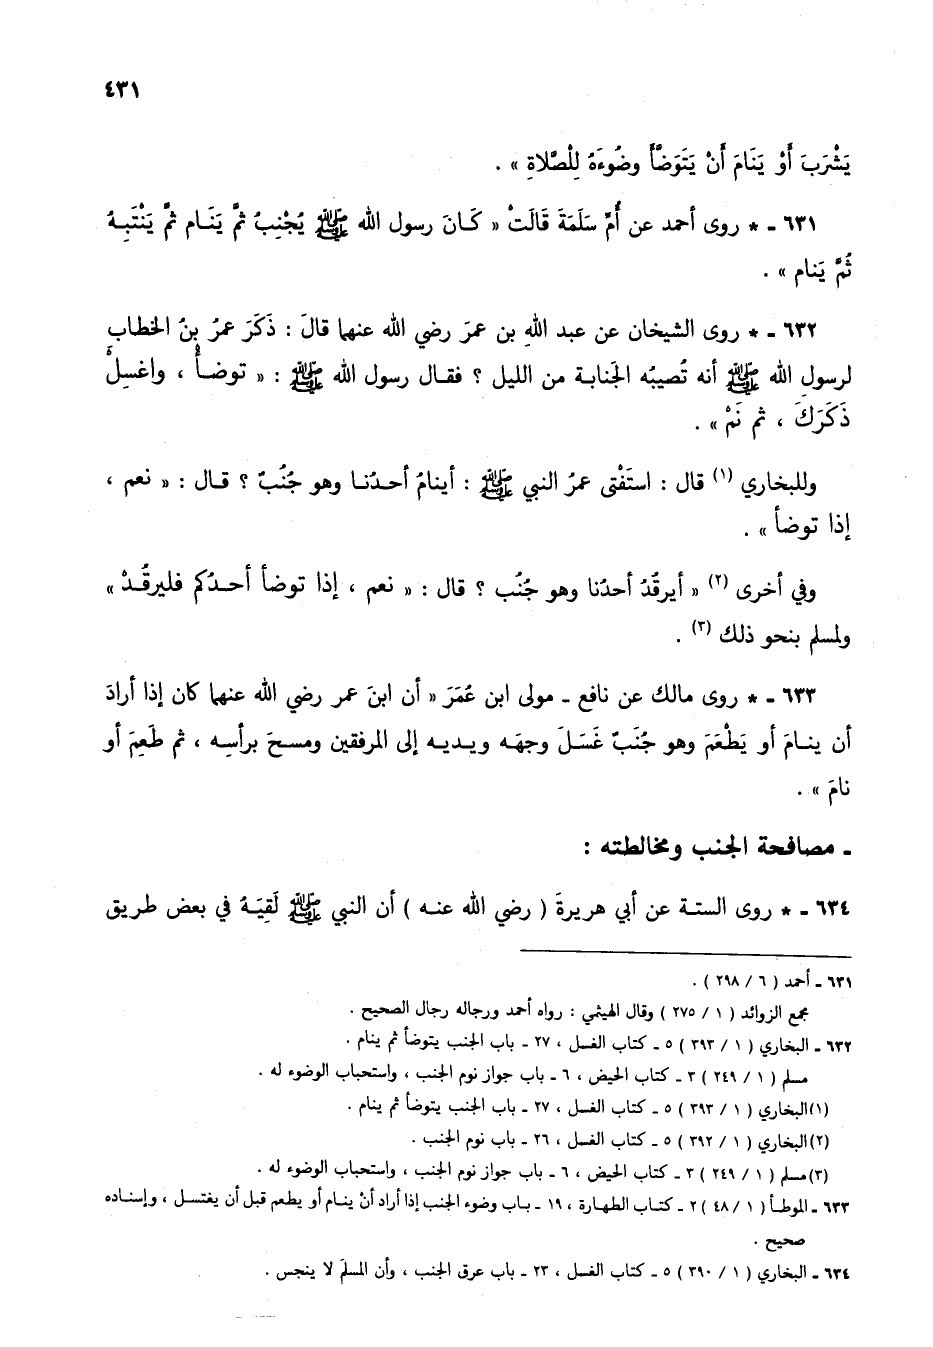 ٤٣١
يَشْرَبَ أَوْ يَنَامَ أَنْ يَتَوَضَّأَ وضُوءَهُ لِلْصَّلاةِ » .
٦٣١ ـ * روى أحمد عن أُمِّ سَلَمَةَ قَالَتْ « كَـانَ رسول الله ﷺ يُجْنِبُ ثمَّ يَنَـام ثمَّ يَنْتَبِـهُ
ثُمَّ يَنام » .
٦٣٢ ـ * روى الشيخان عن عبد اللهِ بن عمرَ رضي الله عنهما قالَ : ذَكَرَ عمرُ بنُ الخطابِ
لرسولِ الله ﷺ أنه تُصيبُه الجَنابـة من الليل ؟ فقـال رسول الله ﷺ : « توضـأْ ، واغسِلْ
ذَكَرَكَ ، ثم نَمْ » .
وللبخاري (١) قال : استَفْتى عمرُ النبي ﷺ : أينامُ أحـدُنـا وهو جُنُبٌ ؟ قـال : « نعم ،
إذا توضأ » .
وفي أخرى (٢) « أيرقُدُ أحدُنا وهو جُنُب ؟ قال : « نعم ، إذا توضأ أحـدُكم فليرقُـدْ »
ولمسلم بنحو ذلك (٣) .
٦٣٣ ـ * روى مالك عن نافع ـ مولى ابن عُمَرَ « أن ابنَ عمر رضي الله عنهما كان إذا أرادَ
أن ينـامَ أو يَطْعَمَ وهو جُنَبٌ غَسَلَ وجهَـه ويـديـه إلى المرفقين ومسـحَ برأسِه ، ثم طَعِمَ أو
نامَ » .
ـ مصافحة الجنب ومخالطته :
٦٣٤ ـ * روى الستـة عن أبي هريرةَ ( رضي الله عنـه ) أن النبي ﷺ لَقِيَـهُ في بعض طريق
٦٣١ ـ أحمد ( ٦ / ٢٩٨ ) .
مجمع الزوائد ( ١ / ٢٧٥ ) وقال الهيثمي : رواه أحمد ورجاله رجال الصحيح .
٦٣٢ ـ البخاري ( ١ / ٣٩٣ ) ٥ ـ كتاب الغسل ، ٢٧ ـ باب الجنب يتوضأ ثم ينام .
مسلم ( ١ / ٢٤٩ ) ٣ ـ كتاب الحيض ، ٦ ـ باب جواز نوم الجنب ، واستحباب الوضوء له .
(١)البخاري ( ١ / ٣٩٣ ) ٥ ـ كتاب الغسل ، ٢٧ ـ باب الجنب يتوضأ ثم ينام .
(٢)البخاري ( ١ / ٣٩٢ ) ٥ ـ كتاب الغسل ، ٢٦ ـ باب نوم الجنب .
(٣)مسلم ( ١ / ٢٤٩ ) ٣ ـ كتاب الحيض ، ٦ ـ باب جواز نوم الجنب ، واستحباب الوضوء له .
٦٣٣ ـ الموطـأ ( ١ / ٤٨ ) ٢ ـ كتـاب الطهـارة ، ١٩ ـ بـاب وضوء الجنب إذا أراد أنْ ينـام أو يطعم قبل أن يغتسـل ، وإسنـاده
صحيح .
٦٣٤ ـ البخاري ( ١ / ٣٩٠ ) ٥ ـ كتاب الغسل ، ٢٣ ـ باب عرق الجنب ، وأن المسلمَ لا ينجس .